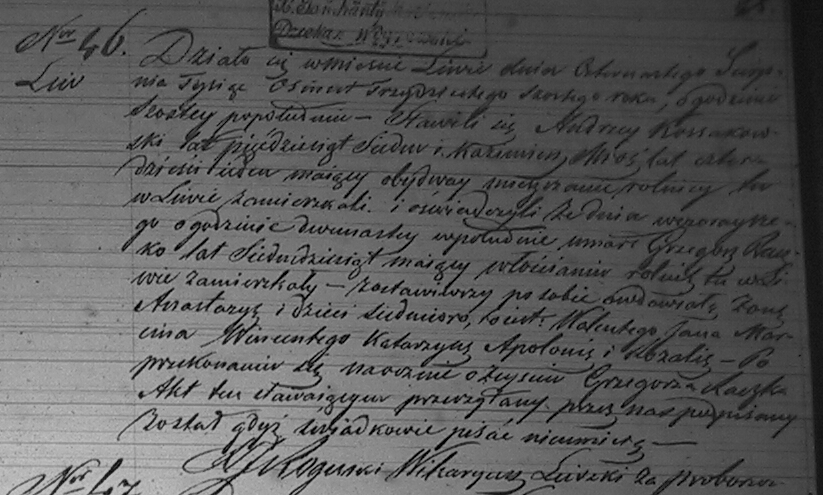 Dziekan Węgrowski
Nro 46.
Liw
Działo się w mieście Liwie dnia Czternastego Sierp-
nia Tysiąc Osmset Trzydziestego szostego roku, o godzinie
szostey popołudniu — Stawili się Andrzey Kossakow-
ski lat pięćdziesiąt siedm i Kazimierz lat czter-
dzieści siedm maiący obydway mieszczanie rolnicy tu
w Liwie zamieszkali. i oswiadczyli że dnia wczoraysze-
go o godzinie dwunastey w południe umarł Grzegorz Racz-
ko lat siedmdziesiąt maiący włościanin rolnik tu w Li-
wie zamieszkały — zostawiwszy po sobie owdowiałą żonę
Anastazyą i dzieci siedmioro, to iest: Walentego Jana Mar-
cina Wincentego Katarzynę Apolonią i Rozalią — Po
przekonaniu się naocznie o zeysciu Grzegorza Raczka
Akt ten stawaiącym przeczytany przez nas podpisany
został gdyż świadkowie pisać nieumieią —
Rogulski Wikaryusz Liwski za proboszcza
Nro 47